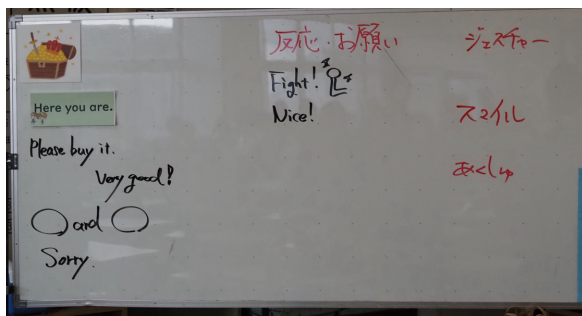 Here you are.
Please buy it.
Very good!
◯ and ◯
Sorry.
反応・お願い
Fight!
Nice!
ジェスチャー
スマイル
あくしゅ